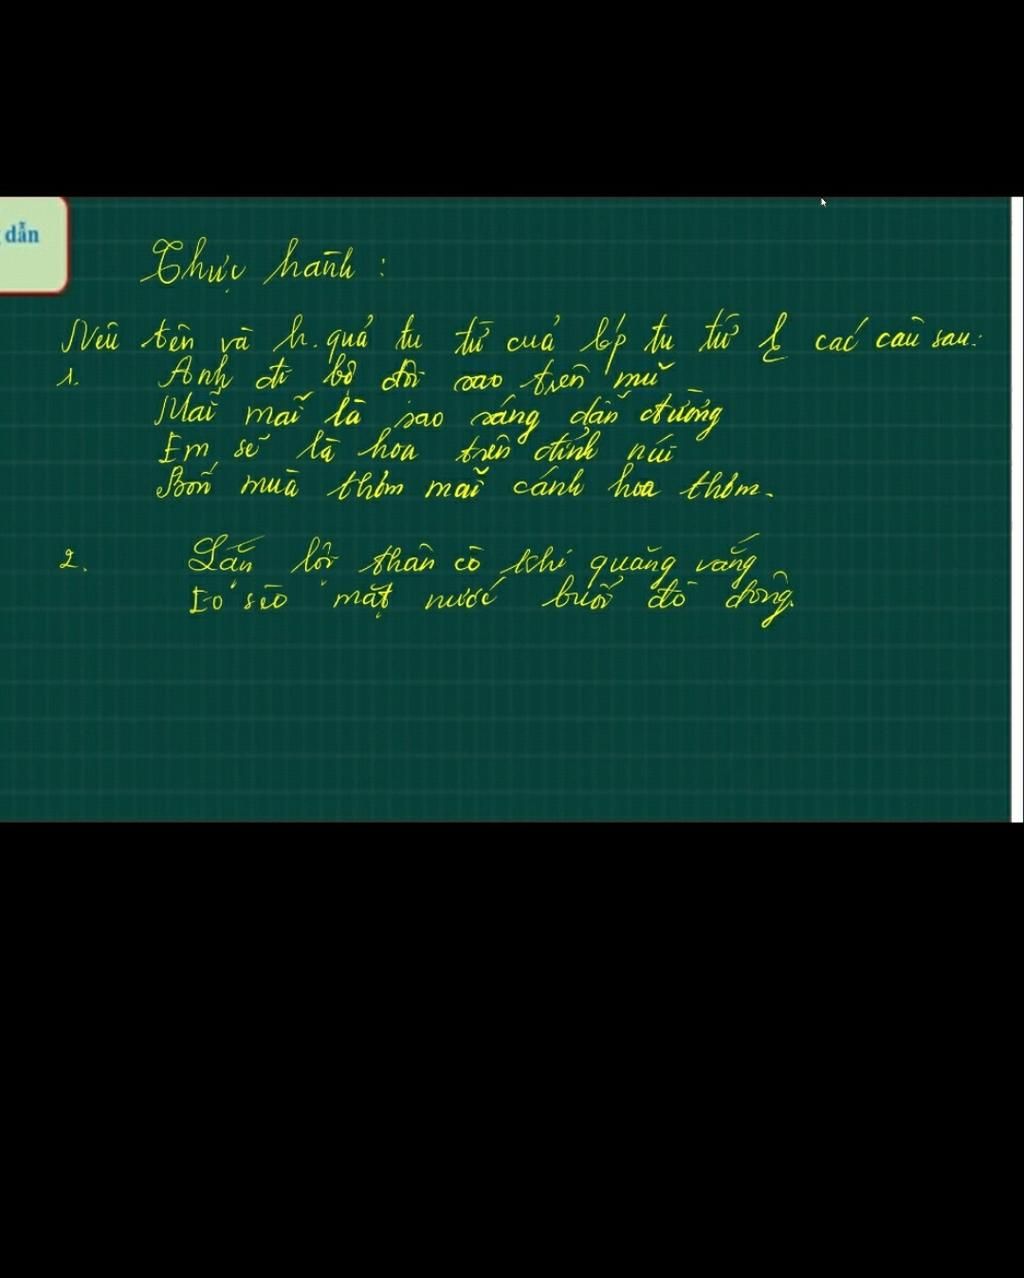 dẫn
Thực hành :
Nêu tên và h.quả tu từ của bp tu từ các câu sau:
1. Anh đi bộ đội sao trên mũ
Mãi mãi là sao sáng dẫn đường
Em sẽ là hoa trên đỉnh núi
Bốn mùa thơm mãi cánh hoa thơm.
2. Lặn lội thân cò khi quãng vắng
Eo sèo mặt nước buổi đò đông.